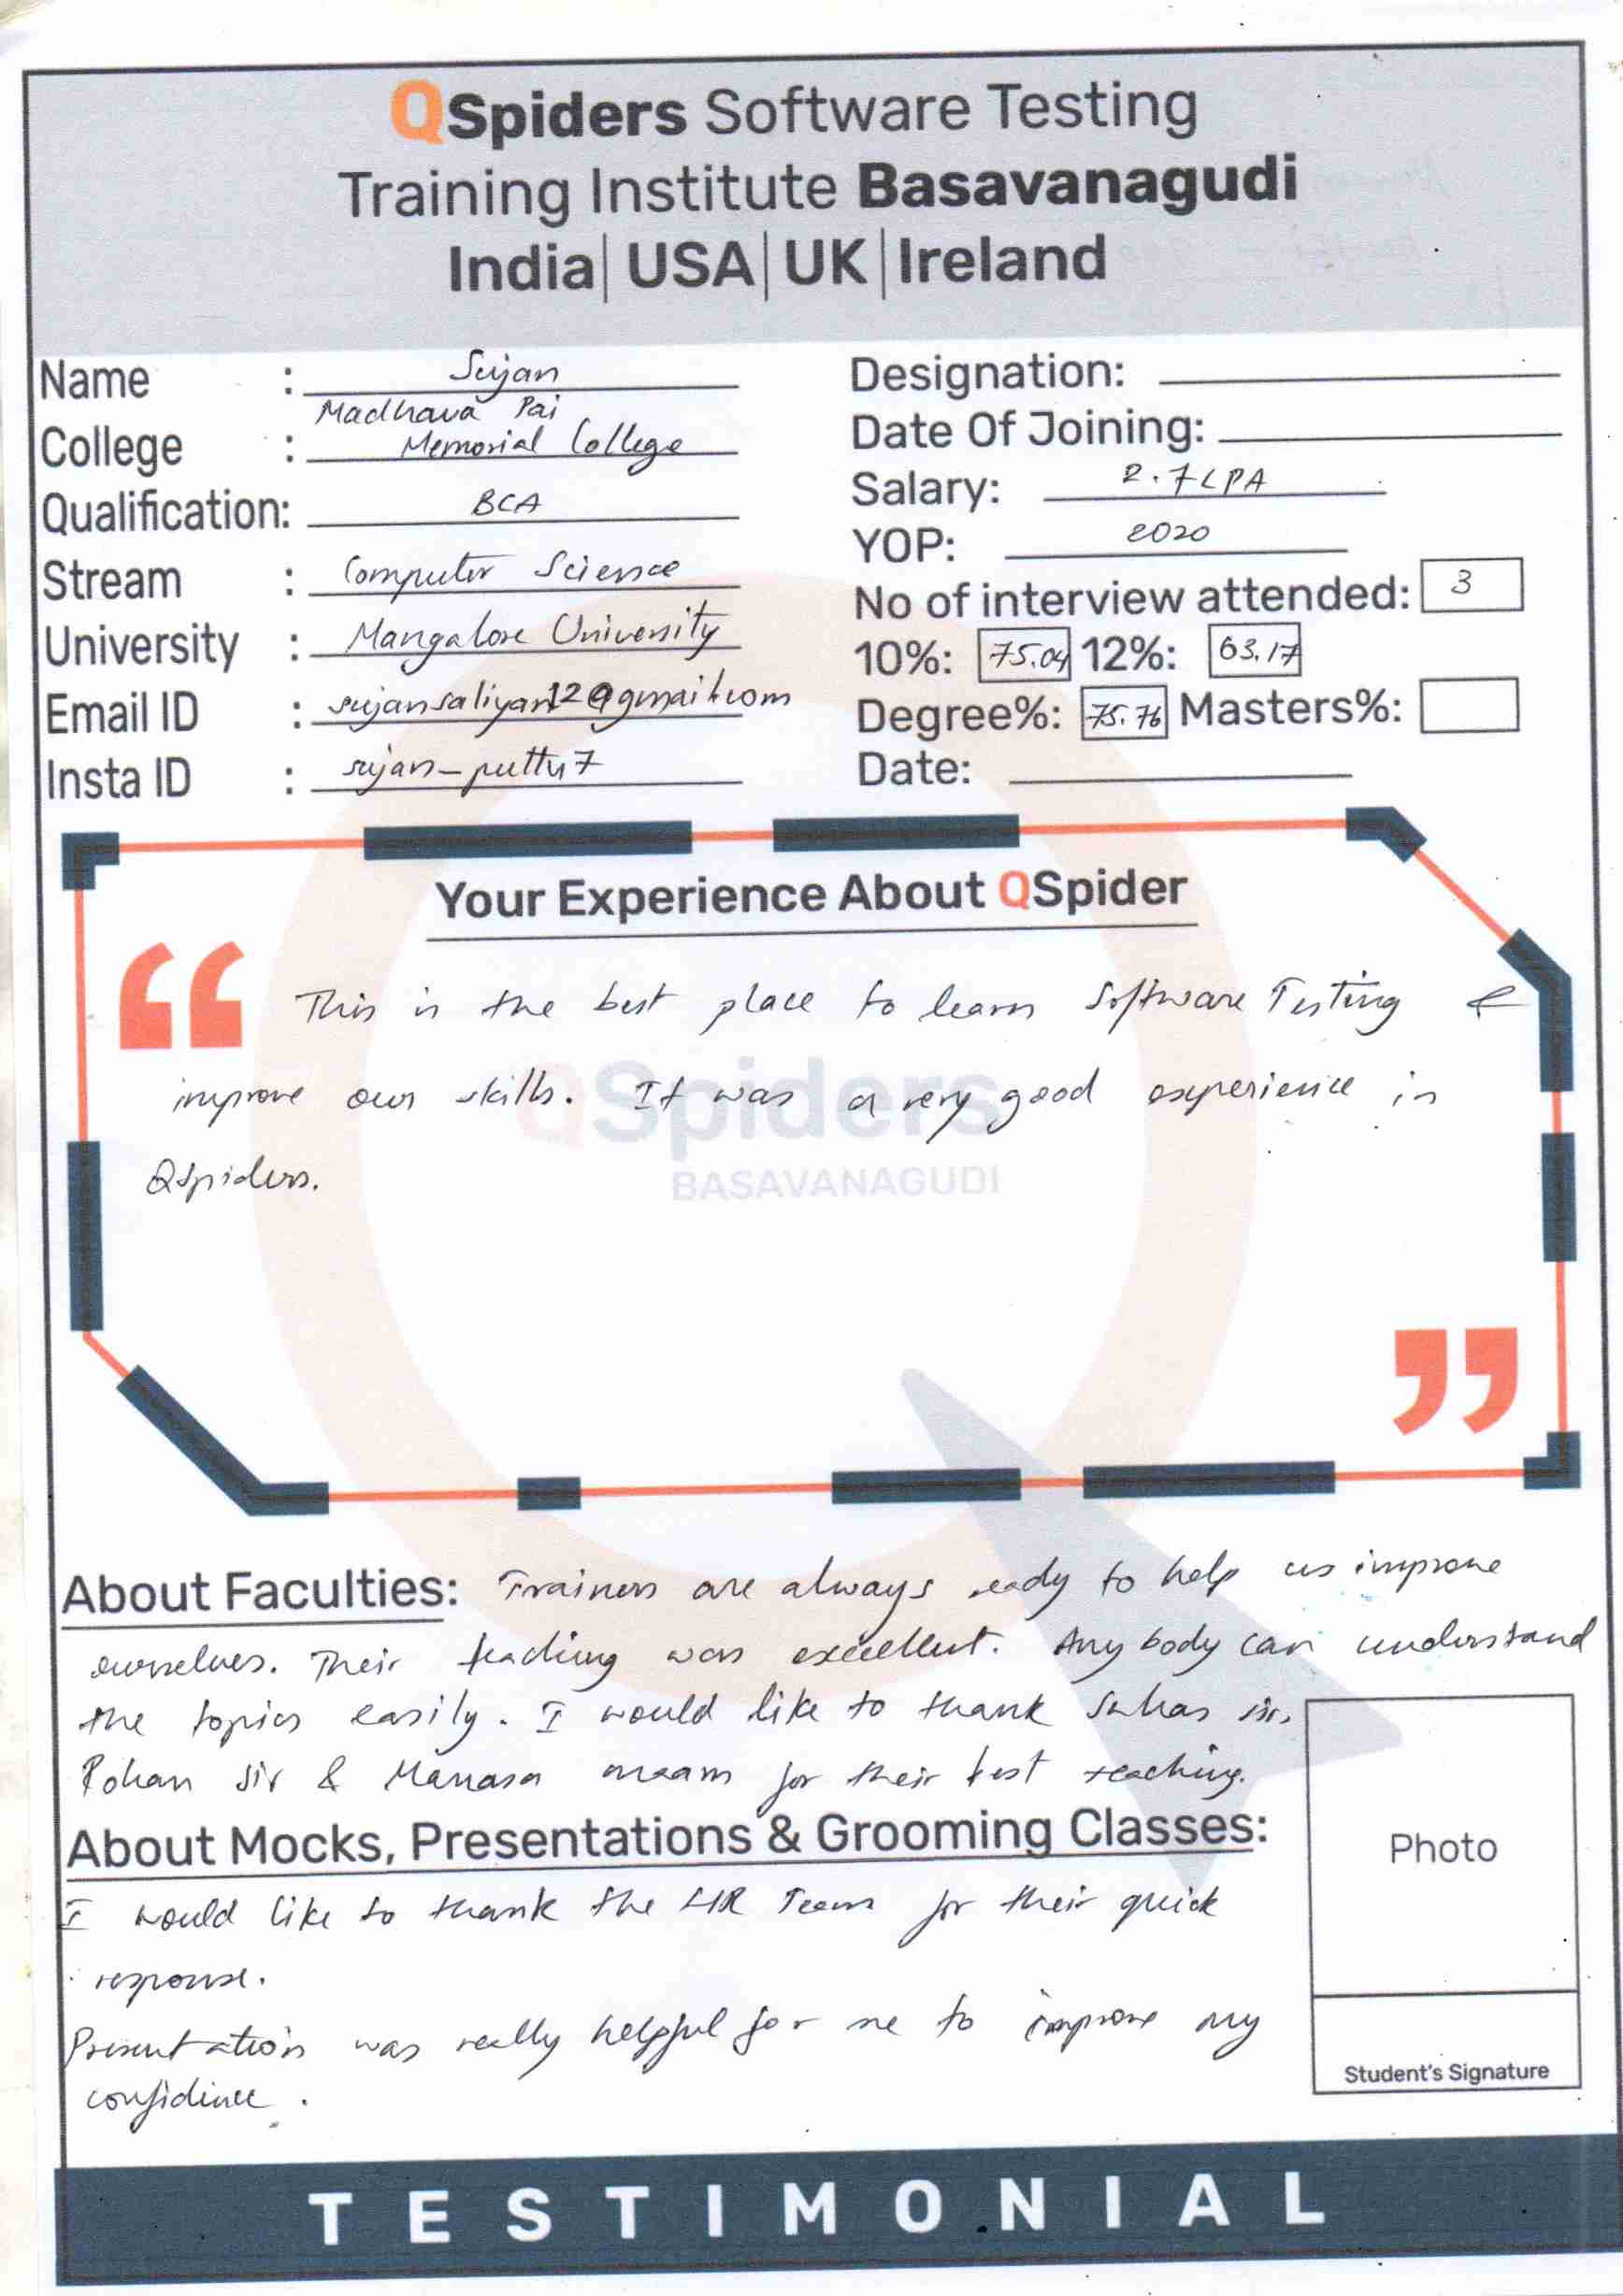 QSpiders Software Testing
Training Institute Basavanagudi
India| USA| UK| Ireland
Name : Sujan
College : Madhava Pai
Memorial College
Qualification: BCA
Stream : Computer Science
University : Mangalore University
Email ID : sujansaliyan12@gmail.com
Insta ID : sujan_puttu7
Designation:
Date Of Joining:
Salary: 2.7LPA
YOP: 2020
No of interview attended: 3
10%: 75.04 12%: 63.17
Degree%: 75.76 Masters%:
Date:
Your Experience About QSpider
“ This is the best place to learn Software Testing &
improve our skills. It was a very good experience in
QSpiders.
QSpiders
BASAVANAGUDI
”
About Faculties: Trainers are always ready to help us improve
ourselves. Their teaching was excellent. Any body can understand
the topics easily. I would like to thank Suhas sir,
Rohan Sir & Manasa maam for their best teaching.
About Mocks, Presentations & Grooming Classes:
I would like to thank the HR Team for their quick
response.
Presentation was really helpful for me to improve my
confidence.
Photo
Student's Signature
TESTIMONIAL